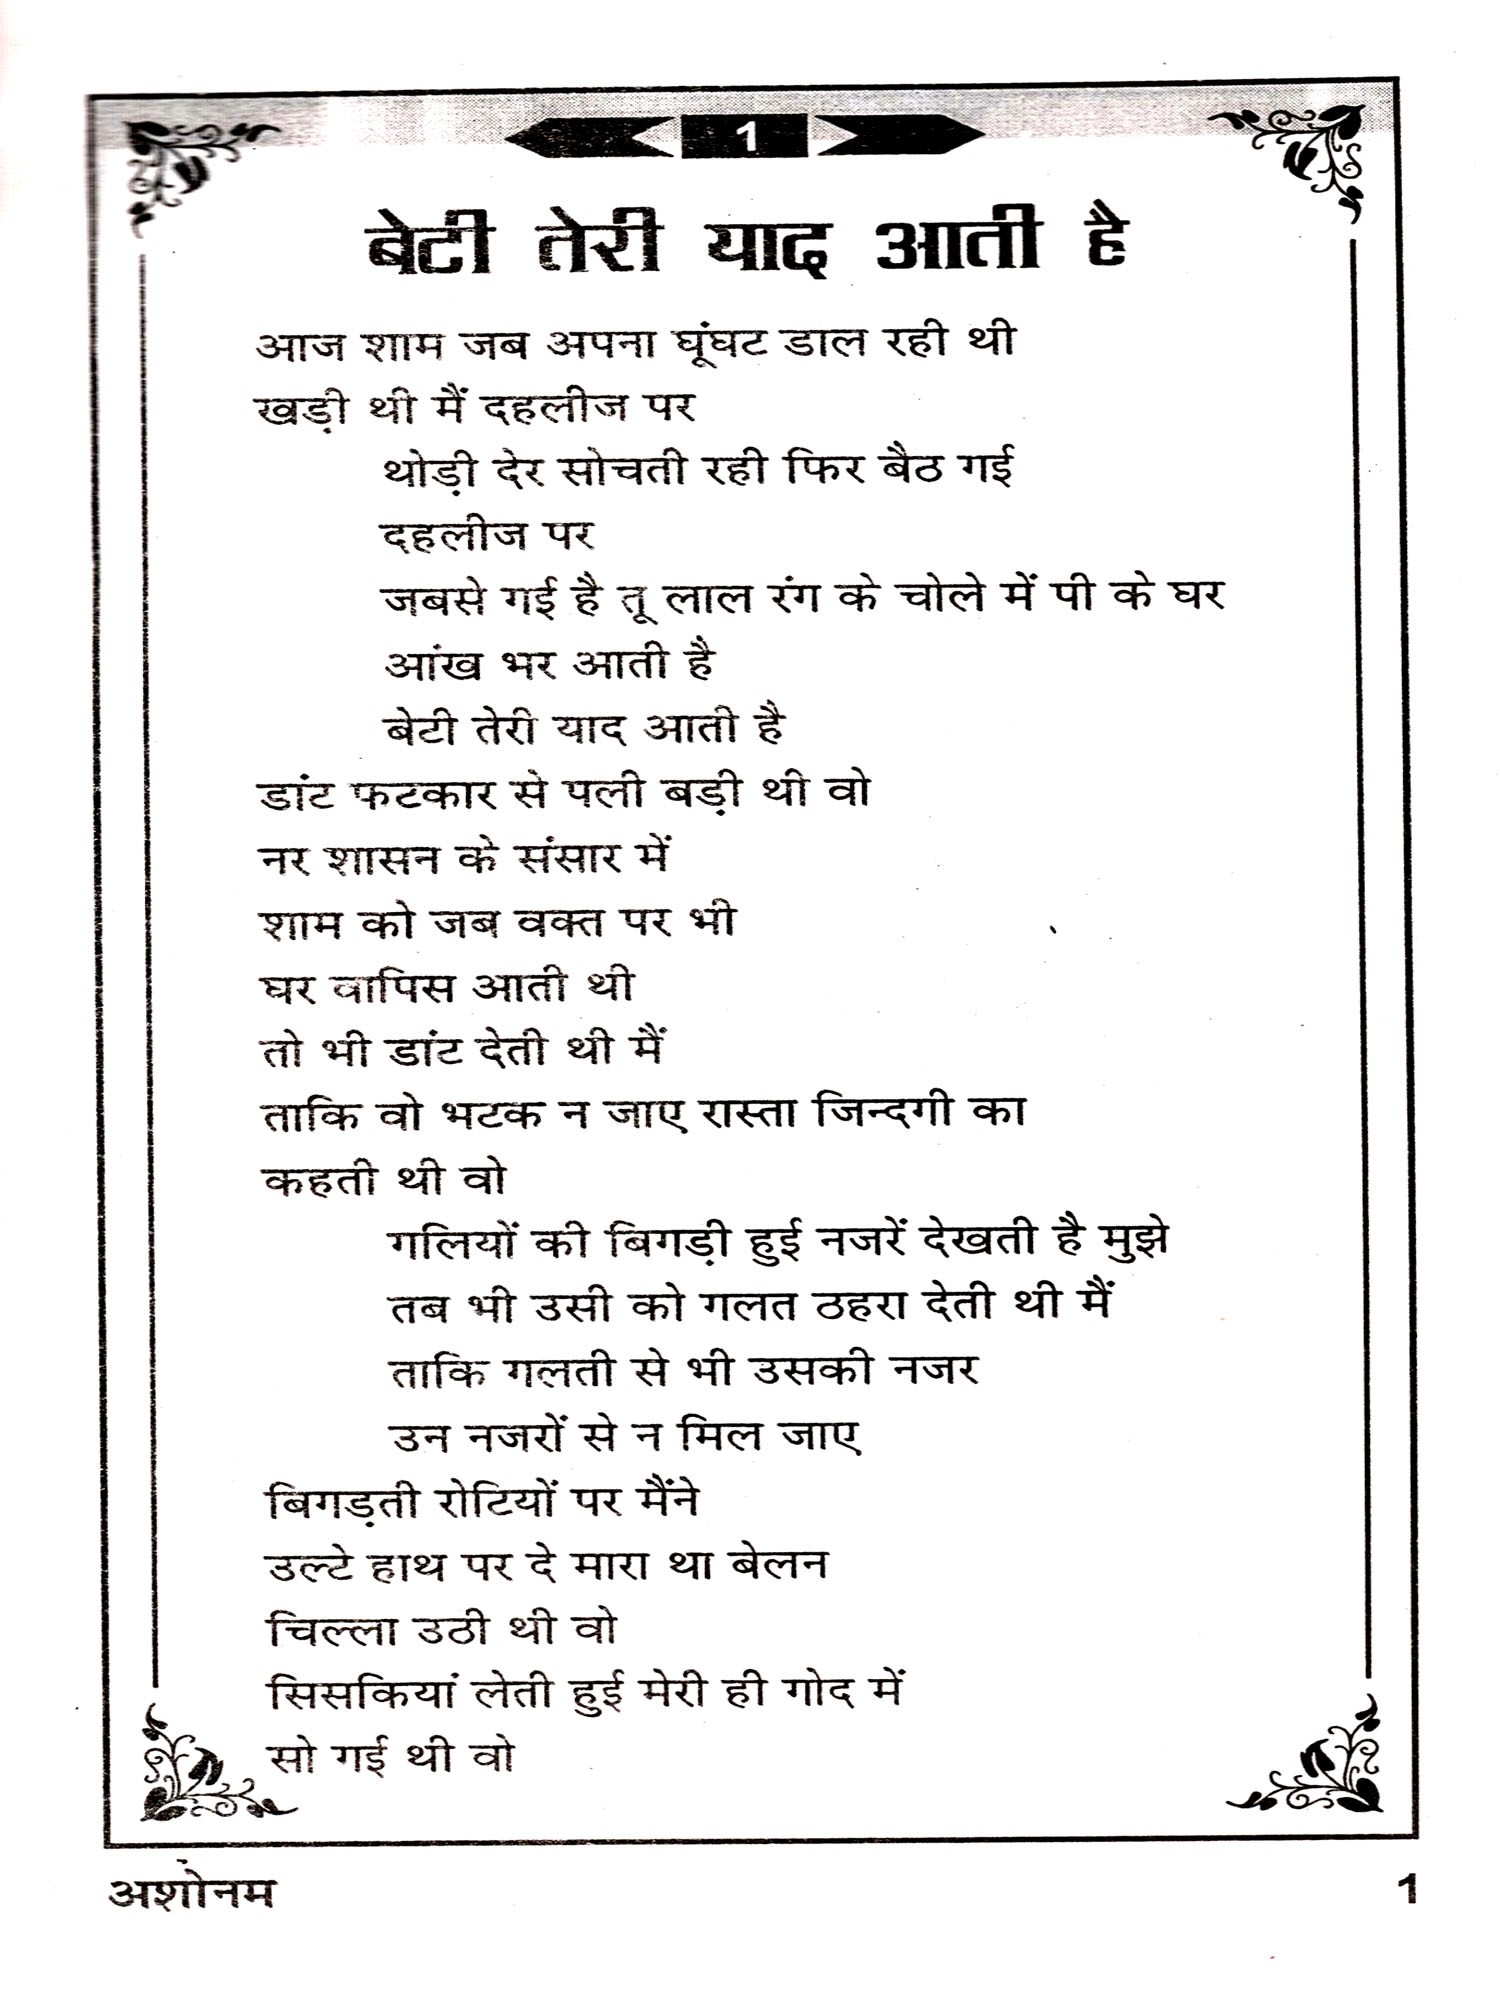 1
बेटी तेरी याद आती है
आज शाम जब अपना घूंघट डाल रही थी
खड़ी थी मैं दहलीज पर
थोड़ी देर सोचती रही फिर बैठ गई
दहलीज पर
जबसे गई है तू लाल रंग के चोले में पी के घर
आंख भर आती है
बेटी तेरी याद आती है
डांट फटकार से पली बड़ी थी वो
नर शासन के संसार में
शाम को जब वक्त पर भी
घर वापिस आती थी
तो भी डांट देती थी मैं
ताकि वो भटक न जाए रास्ता जिन्दगी का
कहती थी वो
गलियों की बिगड़ी हुई नजरें देखती है मुझे
तब भी उसी को गलत ठहरा देती थी मैं
ताकि गलती से भी उसकी नजर
उन नजरों से न मिल जाए
बिगड़ती रोटियों पर मैंने
उल्टे हाथ पर दे मारा था बेलन
चिल्ला उठी थी वो
सिसकियां लेती हुई मेरी ही गोद में
सो गई थी वो
अशोनम 1